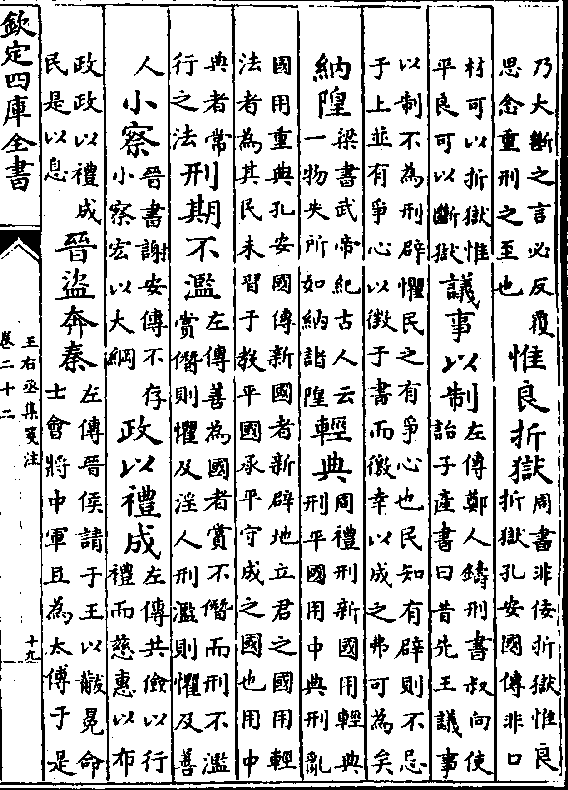 乃大斷之言必反覆
思念重刑之至也
惟良折獄
周書非佞折獄惟良
折獄孔安國傳非口
材可以折獄惟
平良可以斷獄
議事以制
左傳鄭人鑄刑書叔向使
詒子產書曰昔先王議事
以制不為刑辟懼民之有爭心也民知有辟則不忌
于上並有爭心以徵于書而徼幸以成之弗可為矣
納隍
梁書武帝紀古人云
一物失所如納諸隍
輕典
周禮刑新國用輕典
刑平國用中典刑亂
國用重典孔安國傳新國者新辟地立君之國用輕
法者為其民未習于教平國承平守成之國也用中
典者常
行之法
刑期不濫
左傳善為國者賞不僭而刑不濫
賞僭則懼及淫人刑濫則懼及善
人
小察
晉書謝安傳不存
小察宏以大綱
政以禮成
左傳共儉以行
禮而慈惠以布
政政以禮成
民是以息
晉盜奔秦
左傳晉侯請于王以黻冕命
士會將中軍且為太傅于是
欽定四庫全書
王右丞集箋注
卷二十二
十九